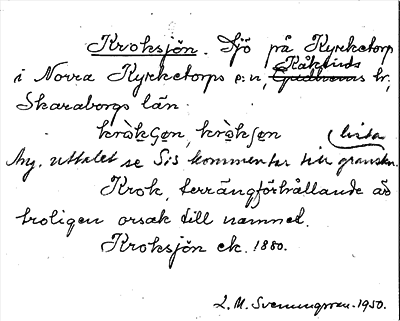 Kroksjön. Sjö på Kyrketorp
Kåkinds
i Norra Kyrketorps sn, Gudhems hd,
Skaraborgs län.
krò̱kʃen, krò̱kʃen (lista
Ang. uttalet se SiS kommentar till granskn.
Krok, terrängförhållande är
troligen orsak till namnet.
Kroksjön ek. 1880.
L. M. Svenungsson. 1950.